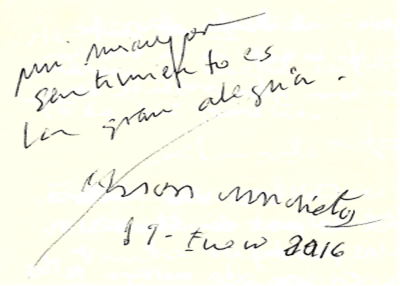 mi mayor
sentimiento es
la gran alegría.
19 - Enero 2016